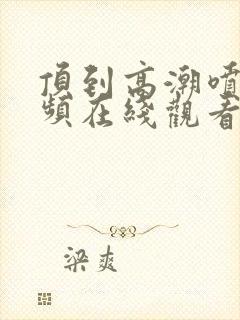 頂到高潮噴
頻在綫觀看
梁爽